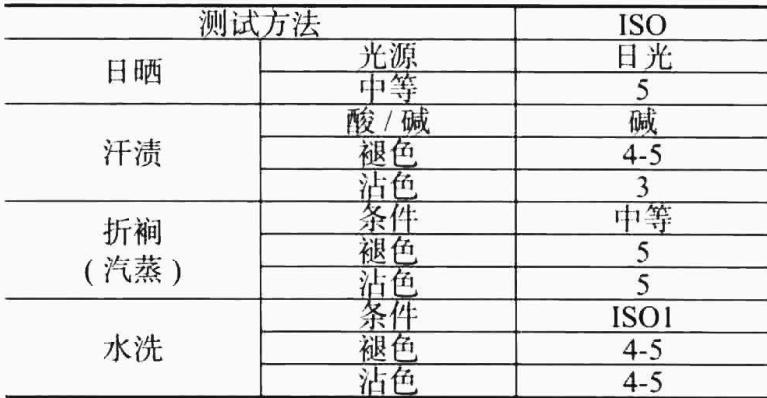 测试方法 ISO
日晒 光源 日光
中等 5
汗渍 酸/碱 碱
褪色 4-5
沾色 3
折裥
(汽蒸) 条件 中等
褪色 5
沾色 5
水洗 条件 ISO1
褪色 4-5
沾色 4-5